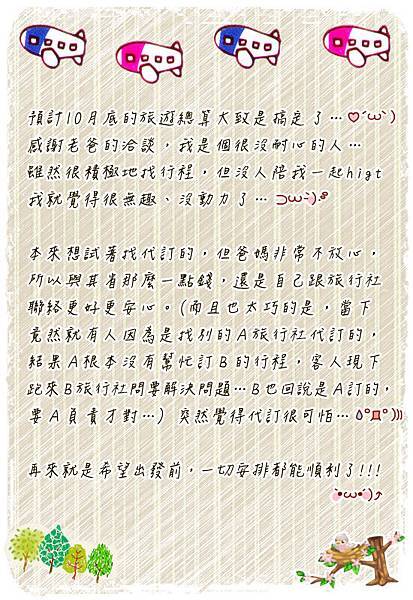 預計10月底的旅遊總算大致是搞定了…♡´ω`)
感謝老爸的洽談，我是個很沒耐心的人…
雖然很積極地找行程，但沒人陪我一起higt
我就覺得很無趣、沒動力了…
本來想試著找代訂的，但爸媽非常不放心，
所以與其省那麼一點錢，還是自己跟旅行社
聯絡更好更安心。(而且也太巧的是，當下
竟然就有人因為是找別的A旅行社代訂的，
結果A根本沒有幫忙訂B的行程，客人現下
跑來B旅行社問要解決問題…B也回說是A訂的，
要A負責才對…) 突然覺得代訂很可怕…
再來就是希望出發前，一切安排都能順利了!!!